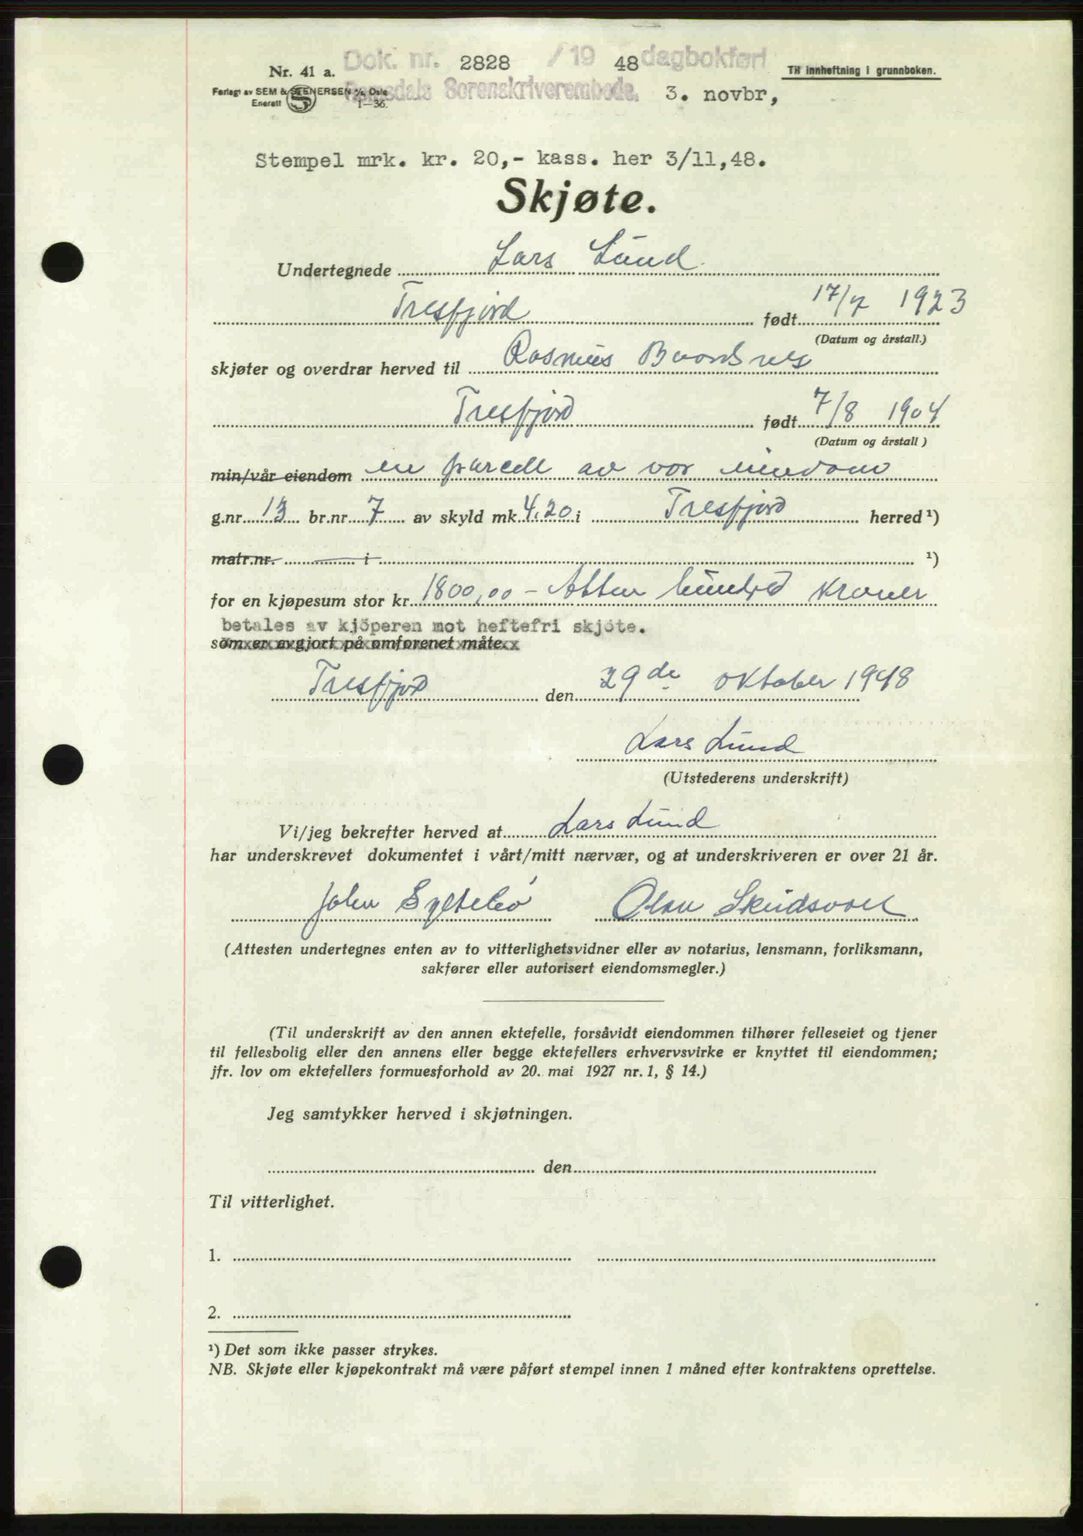 Nr. 41 a.
Dok. nr. 2828 /19 48 dagbokført
Til innheftning i grunnboken.
Forlagt av SEM & STENERSEN A/S, Oslo
Enerett S 1—36.
Romsdals Sorenskriverembede, 3. novbr,
Stempel mrk. kr. 20,- kass. her 3/11,48.
Skjøte.
Undertegnede Lars Lund
Tresfjord født 17/7 1923
(Datum og årstall.)
skjøter og overdrar herved til Rasmus
Tresfjord født 7/8 1904
(Datum og årstall)
min/vår eiendom en parcell av vor eiendom
g.nr. 13 br.nr. 7 av skyld mk. 4.20 i Tresfjord herred ¹)
matr.nr. i ¹)
for en kjøpesum stor kr. 1800,00 - Atten hundred kroner
betales av kjöperen mot heftefri skjöte.
som er avgjort på omførenet måte.
Tresfjord den 29de oktober 1948
Lars Lund
(Utstederens underskrift)
Vi/jeg bekrefter herved at Lars Lund
har underskrevet dokumentet i vårt/mitt nærvær, og at underskriveren er over 21 år.
John Syltebö Olav
(Attesten undertegnes enten av to vitterlighetsvidner eller av notarius, lensmann, forliksmann,
sakfører eller autorisert eiendomsmegler.)
(Til underskrift av den annen ektefelle, forsåvidt eiendommen tilhører felleseiet og tjener
til fellesbolig eller den annens eller begge ektefellers erhvervsvirke er knyttet til eiendommen;
jfr. lov om ektefellers formuesforhold av 20. mai 1927 nr. 1, § 14.)
Jeg samtykker herved i skjøtningen.
den
Til vitterlighet.
1.
2.
¹) Det som ikke passer strykes.
NB. Skjøte eller kjøpekontrakt må være påført stempel innen 1 måned efter kontraktens oprettelse.